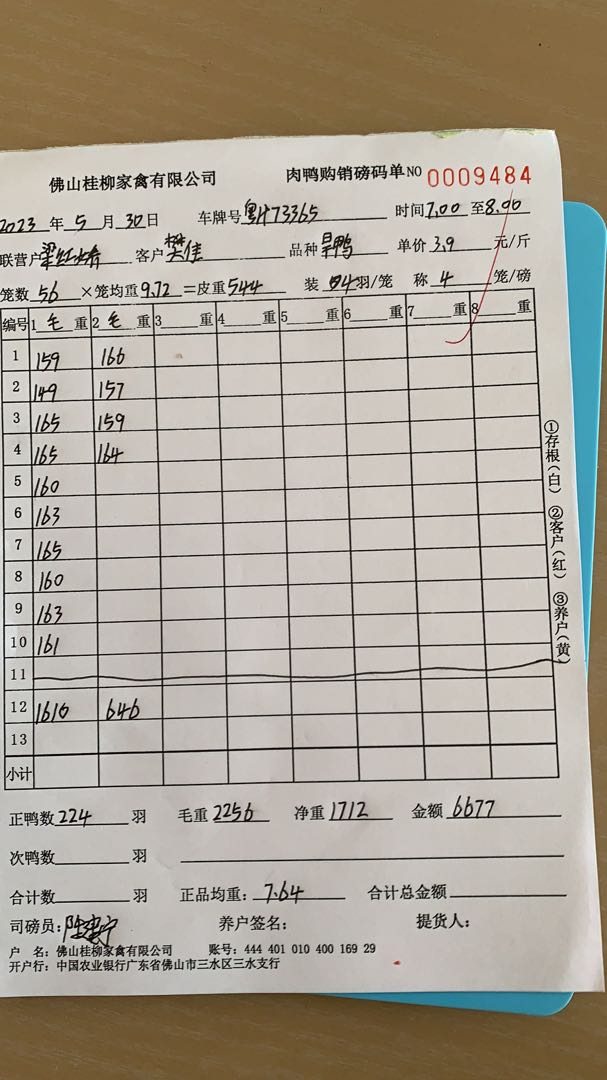 佛山桂柳家禽有限公司 肉鸭购销磅码单 NO 0009484
2023 年 5 月 30 日 车牌号 73365 时间 7.00 至 8.00
联营户 客户 樊佳 品种 旱鸭 单价 3.9 元/斤
笼数 56 ×笼均重 9.72 =皮重 544 装 4 羽/笼 称 4 笼/磅
编号 1 毛 重 2 毛 重 3 重 4 重 5 重 6 重 7 重 8 重
1 159 166
2 149 157
3 165 159
4 165 164
5 160
6 163
7 165
8 160
9 163
10 161
11
12 1610 646
13
小计
正鸭数 224 羽 毛重 2256 净重 1712 金额 6677
次鸭数 羽
合计数 羽 正品均重: 7.64 合计总金额
司磅员: 养户签名: 提货人:
户 名: 佛山桂柳家禽有限公司 账号: 444 401 010 400 169 29
开户行: 中国农业银行广东省佛山市三水区三水支行
①存根(白) ②客户(红) ③养户(黄)